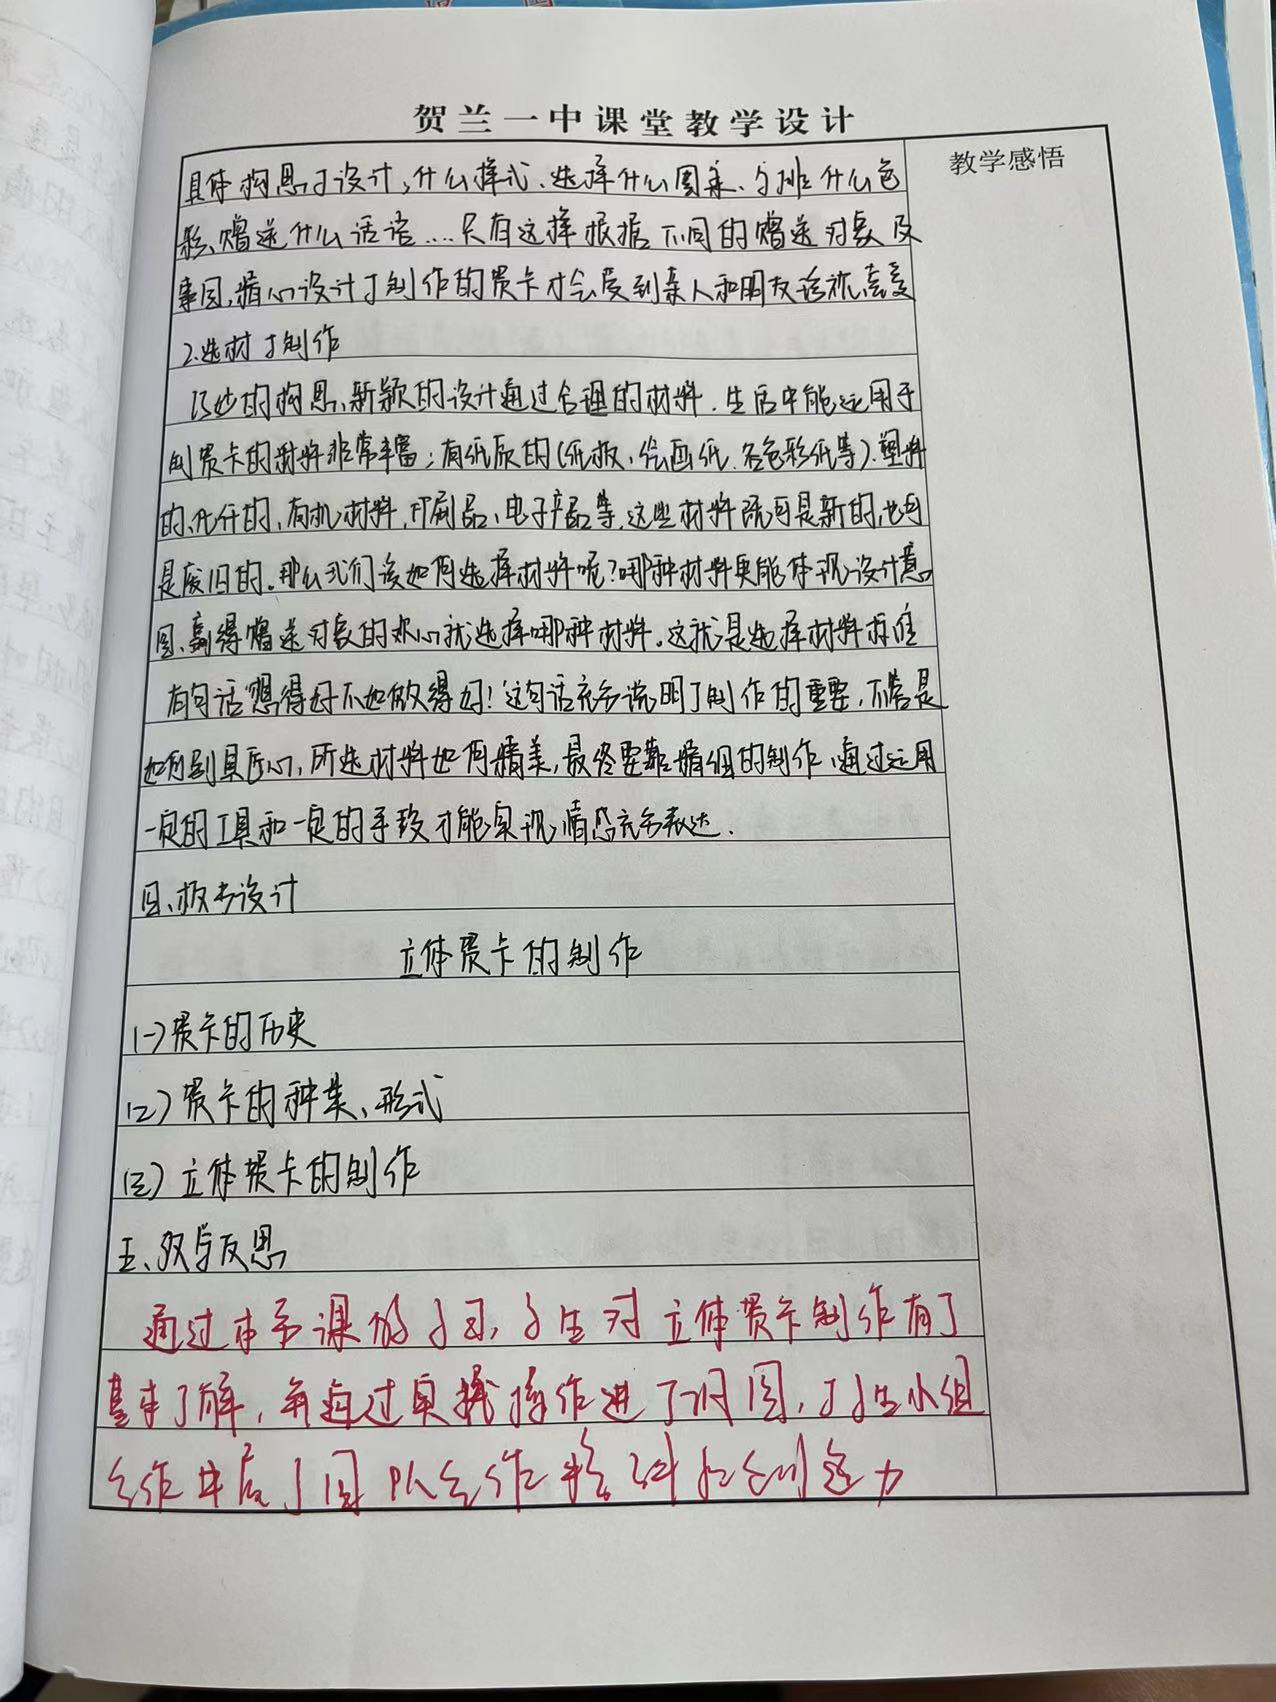 贺兰一中课堂教学设计
教学感悟
具体构思与设计,什么样式、选择什么图案、安排什么色
彩、赠送什么话语....只有这样根据不同的赠送对象及
事因,精心设计与制作的贺卡才会受到亲人和朋友珍视,喜爱
2.选材与制作
巧妙的构思、新颖的设计通过合理的材料.生活中能运用于
制贺卡的材料非常丰富:有纸质的(纸板、绘画纸.各色彩纸等).塑料
的、化纤的,有机材料,印刷品、电子产品等.这些材料既可是新的,也可
是废旧的。那么我们该如何选择材料呢?哪种材料更能体现设计意
图、赢得赠送对象的欢心就选择哪种材料。这就是选择材料标准
有句话"想得好不如做得好!这句话充分说明了制作的重要,不管是
如何别具匠心,所选材料如何精美,最终要靠精细的制作.通过运用
一定的工具和一定的手段才能实现情感充分表达.
四、板书设计
立体贺卡的制作
(一)贺卡的历史
(二)贺卡的种类、形式
(三)立体贺卡的制作
五、教学反思
通过本节课的学习,学生对立体贺卡制作有了
基本了解,并通过实践操作进了巩固,学生小组
合作中培了团队合作精神和创造力